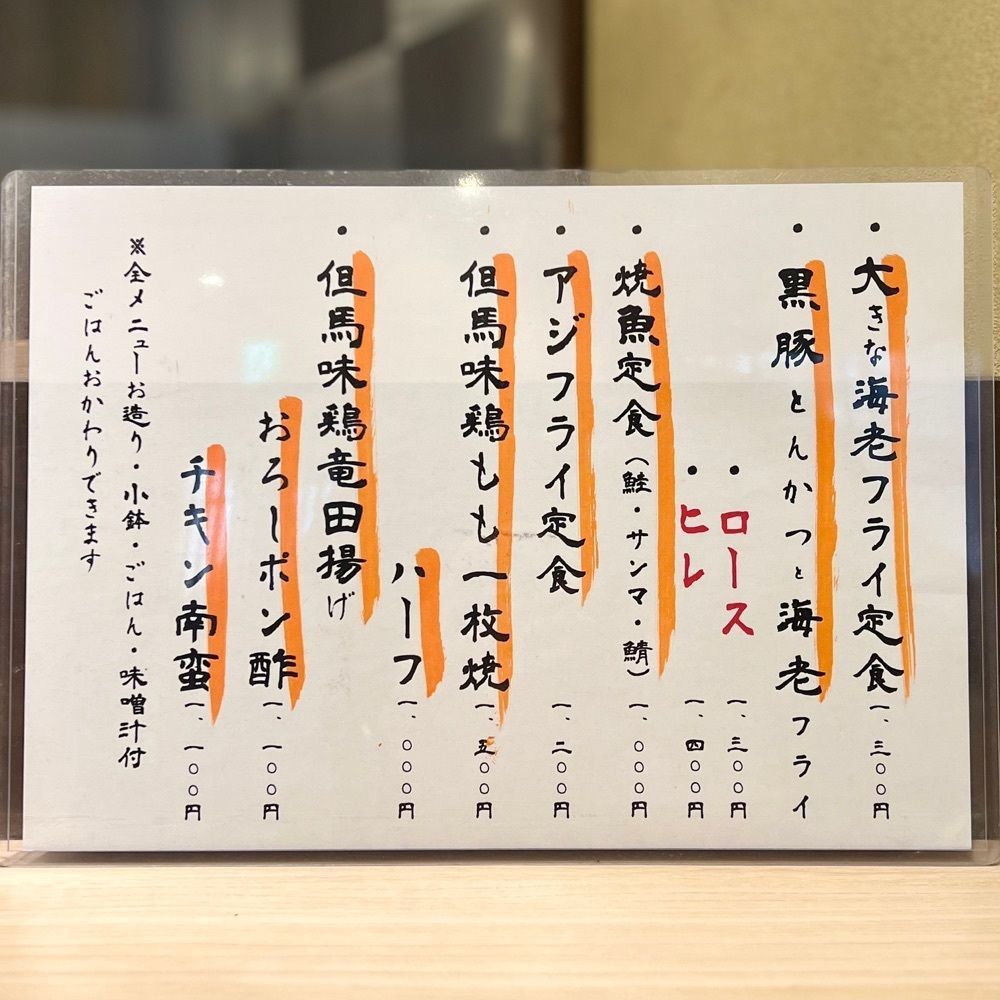 ・大きな海老フライ定食 一、三〇〇円
・黒豚とんかつと海老フライ
・ロース 一、三〇〇円
・ヒレ 一、四〇〇円
・焼魚定食(鮭・サンマ・鯖) 一、〇〇〇円
・アジフライ定食 一、二〇〇円
・但馬味鶏もも一枚焼 一、五〇〇円
ハーフ 一、〇〇〇円
・但馬味鶏竜田揚げ
おろしポン酢 一、一〇〇円
チキン南蛮 一、一〇〇円
※全メニューお造り・小鉢・ごはん・味噌汁付
ごはんおかわりできます